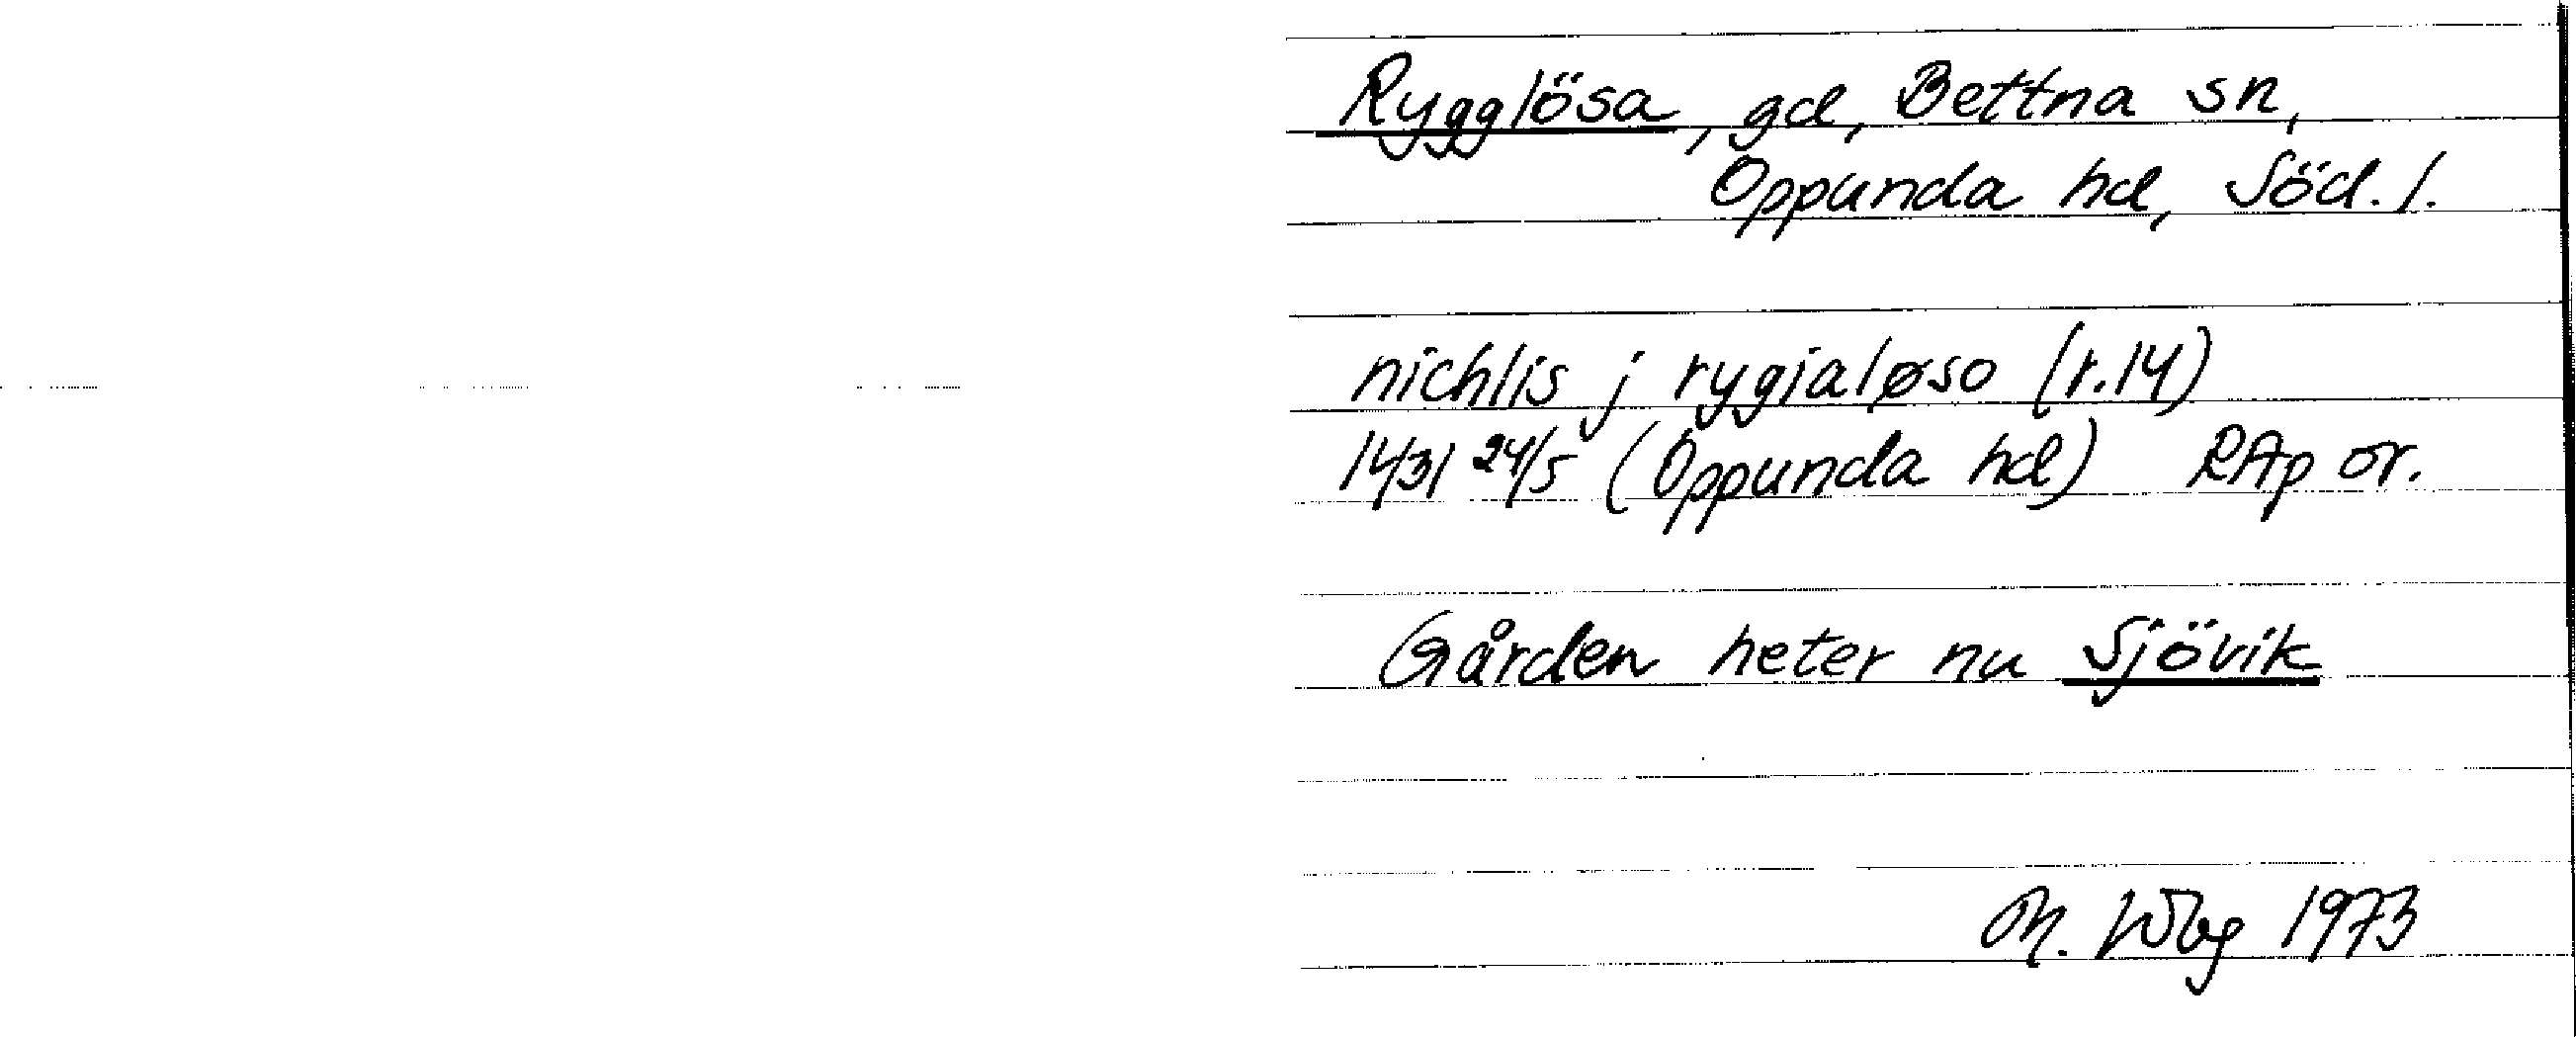 Rygglösa, gd, Bettna sn,
Oppunda hd, Söd. l.
nichlis j rygialøso (r.14)
1431 24/5 (Oppunda hd) RAp or.
Gården heter nu Sjövik
M. Wbg 1973